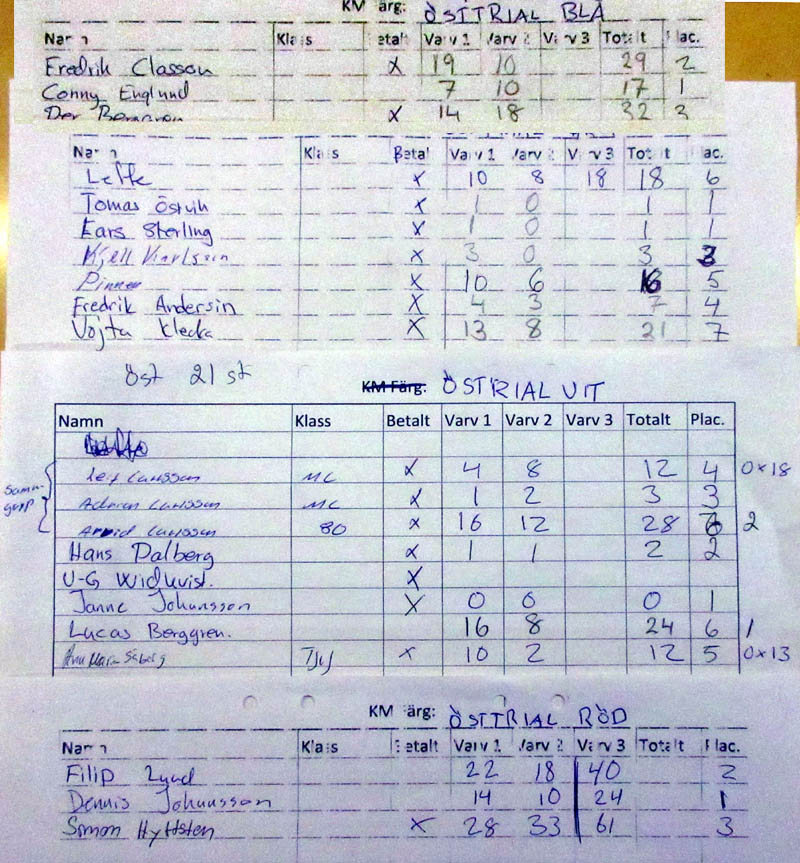 KM Färg: ÖSTTRIAL BLÅ
Namn Klass Betalt Varv 1 Varv 2 Varv 3 Totalt Plac.
Fredrik Classon x 19 10 29 2
Conny Englund 7 10 17 1
Per Berggren x 14 18 32 3
Namn Klass Betal Varv 1 Varv 2 Varv 3 Totalt Plac.
x 10 8 18 18 6
Tomas Östvik x 1 0 1 1
Lars Sterling x 1 0 1 1
Kjell Karlsson x 3 0 3 3
Pinnen x 10 6 16 5
Fredrik Andersin x 4 3 7 4
Vojta Klecka x 13 8 21 7
Öst 21 st
KM Färg: ÖSTTRIAL VIT
Namn Klass Betalt Varv 1 Varv 2 Varv 3 Totalt Plac.
Leif Larsson MC x 4 8 12 4 0x18
Adrian Larsson MC x 1 2 3 3
Arvid Larsson 80 x 16 12 28 2
Hans Dalberg x 1 1 2 2
U-G Widqvist. x
Janne Johansson x 0 0 0 1
Lucas Berggren. 16 8 24 6 1
Ann Marie Säberg Tjej x 10 2 12 5 0x13
KM Färg: ÖSTTRIAL RÖD
Namn Klass Betalt Varv 1 Varv 2 Varv 3 Totalt Plac.
Filip Lund 22 18 40 2
Dennis Johansson 14 10 24 1
Simon Hyttsten x 28 33 61 3